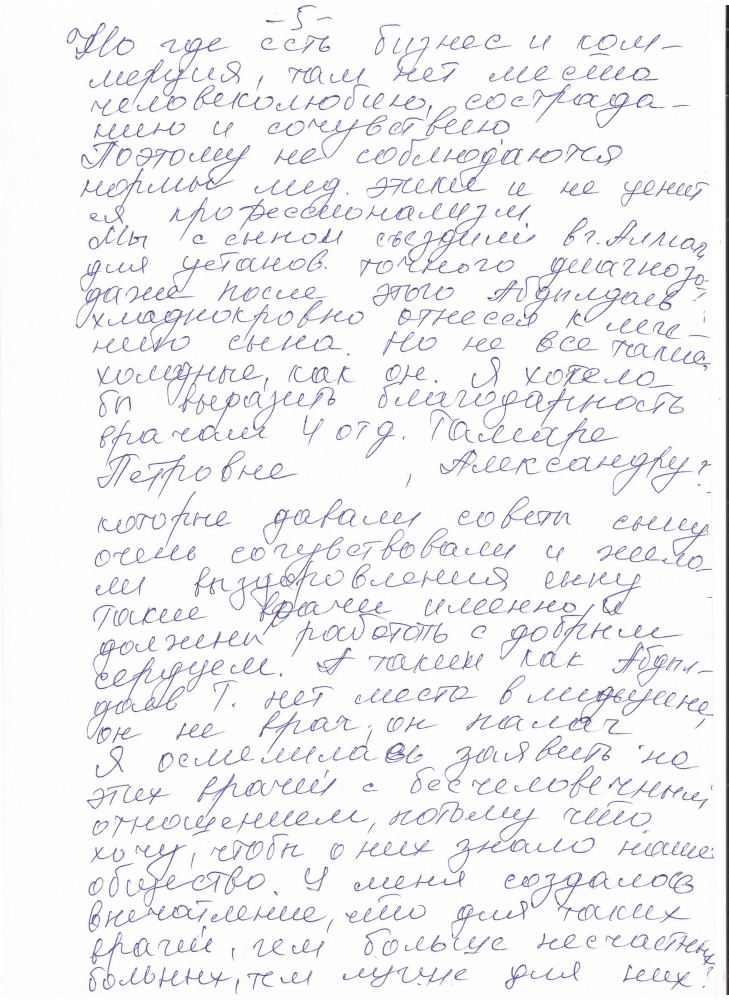 -5-
Но где есть бизнес и ком-
мерция, там нет места
человеколюбию, сострада-
нию и сочувствию
Поэтому не соблюдаются
нормы мед. этики и не ценит
ся профессионализм
Мы с сыном съездили в г. Алмат
для установ. точного диагноза
даже после этого Абдылдаев
хладнокровно отнесся к лече-
нию сына. Но не все такие
холодные, как он. Я хотела
бы выразить благодарность
врачам 4 отд. Тамаре
Петровне , Александру
которые давали советы сыну
очень сочувствовали и жела-
ли выздоровления сыну
Такие врачи именно и
должны работать с добрым
сердцем. А таким как Абдыл-
даев Т. нет места в медицине,
он не врач, он палач
Я осмелилась заявить на
этих врачей с бесчеловечным
отношением, потому что
хочу, чтобы о них знало наше
общество. У меня создалось
впечатление, что для таких
врачей, чем больше несчастных
больных, тем лучше для них?